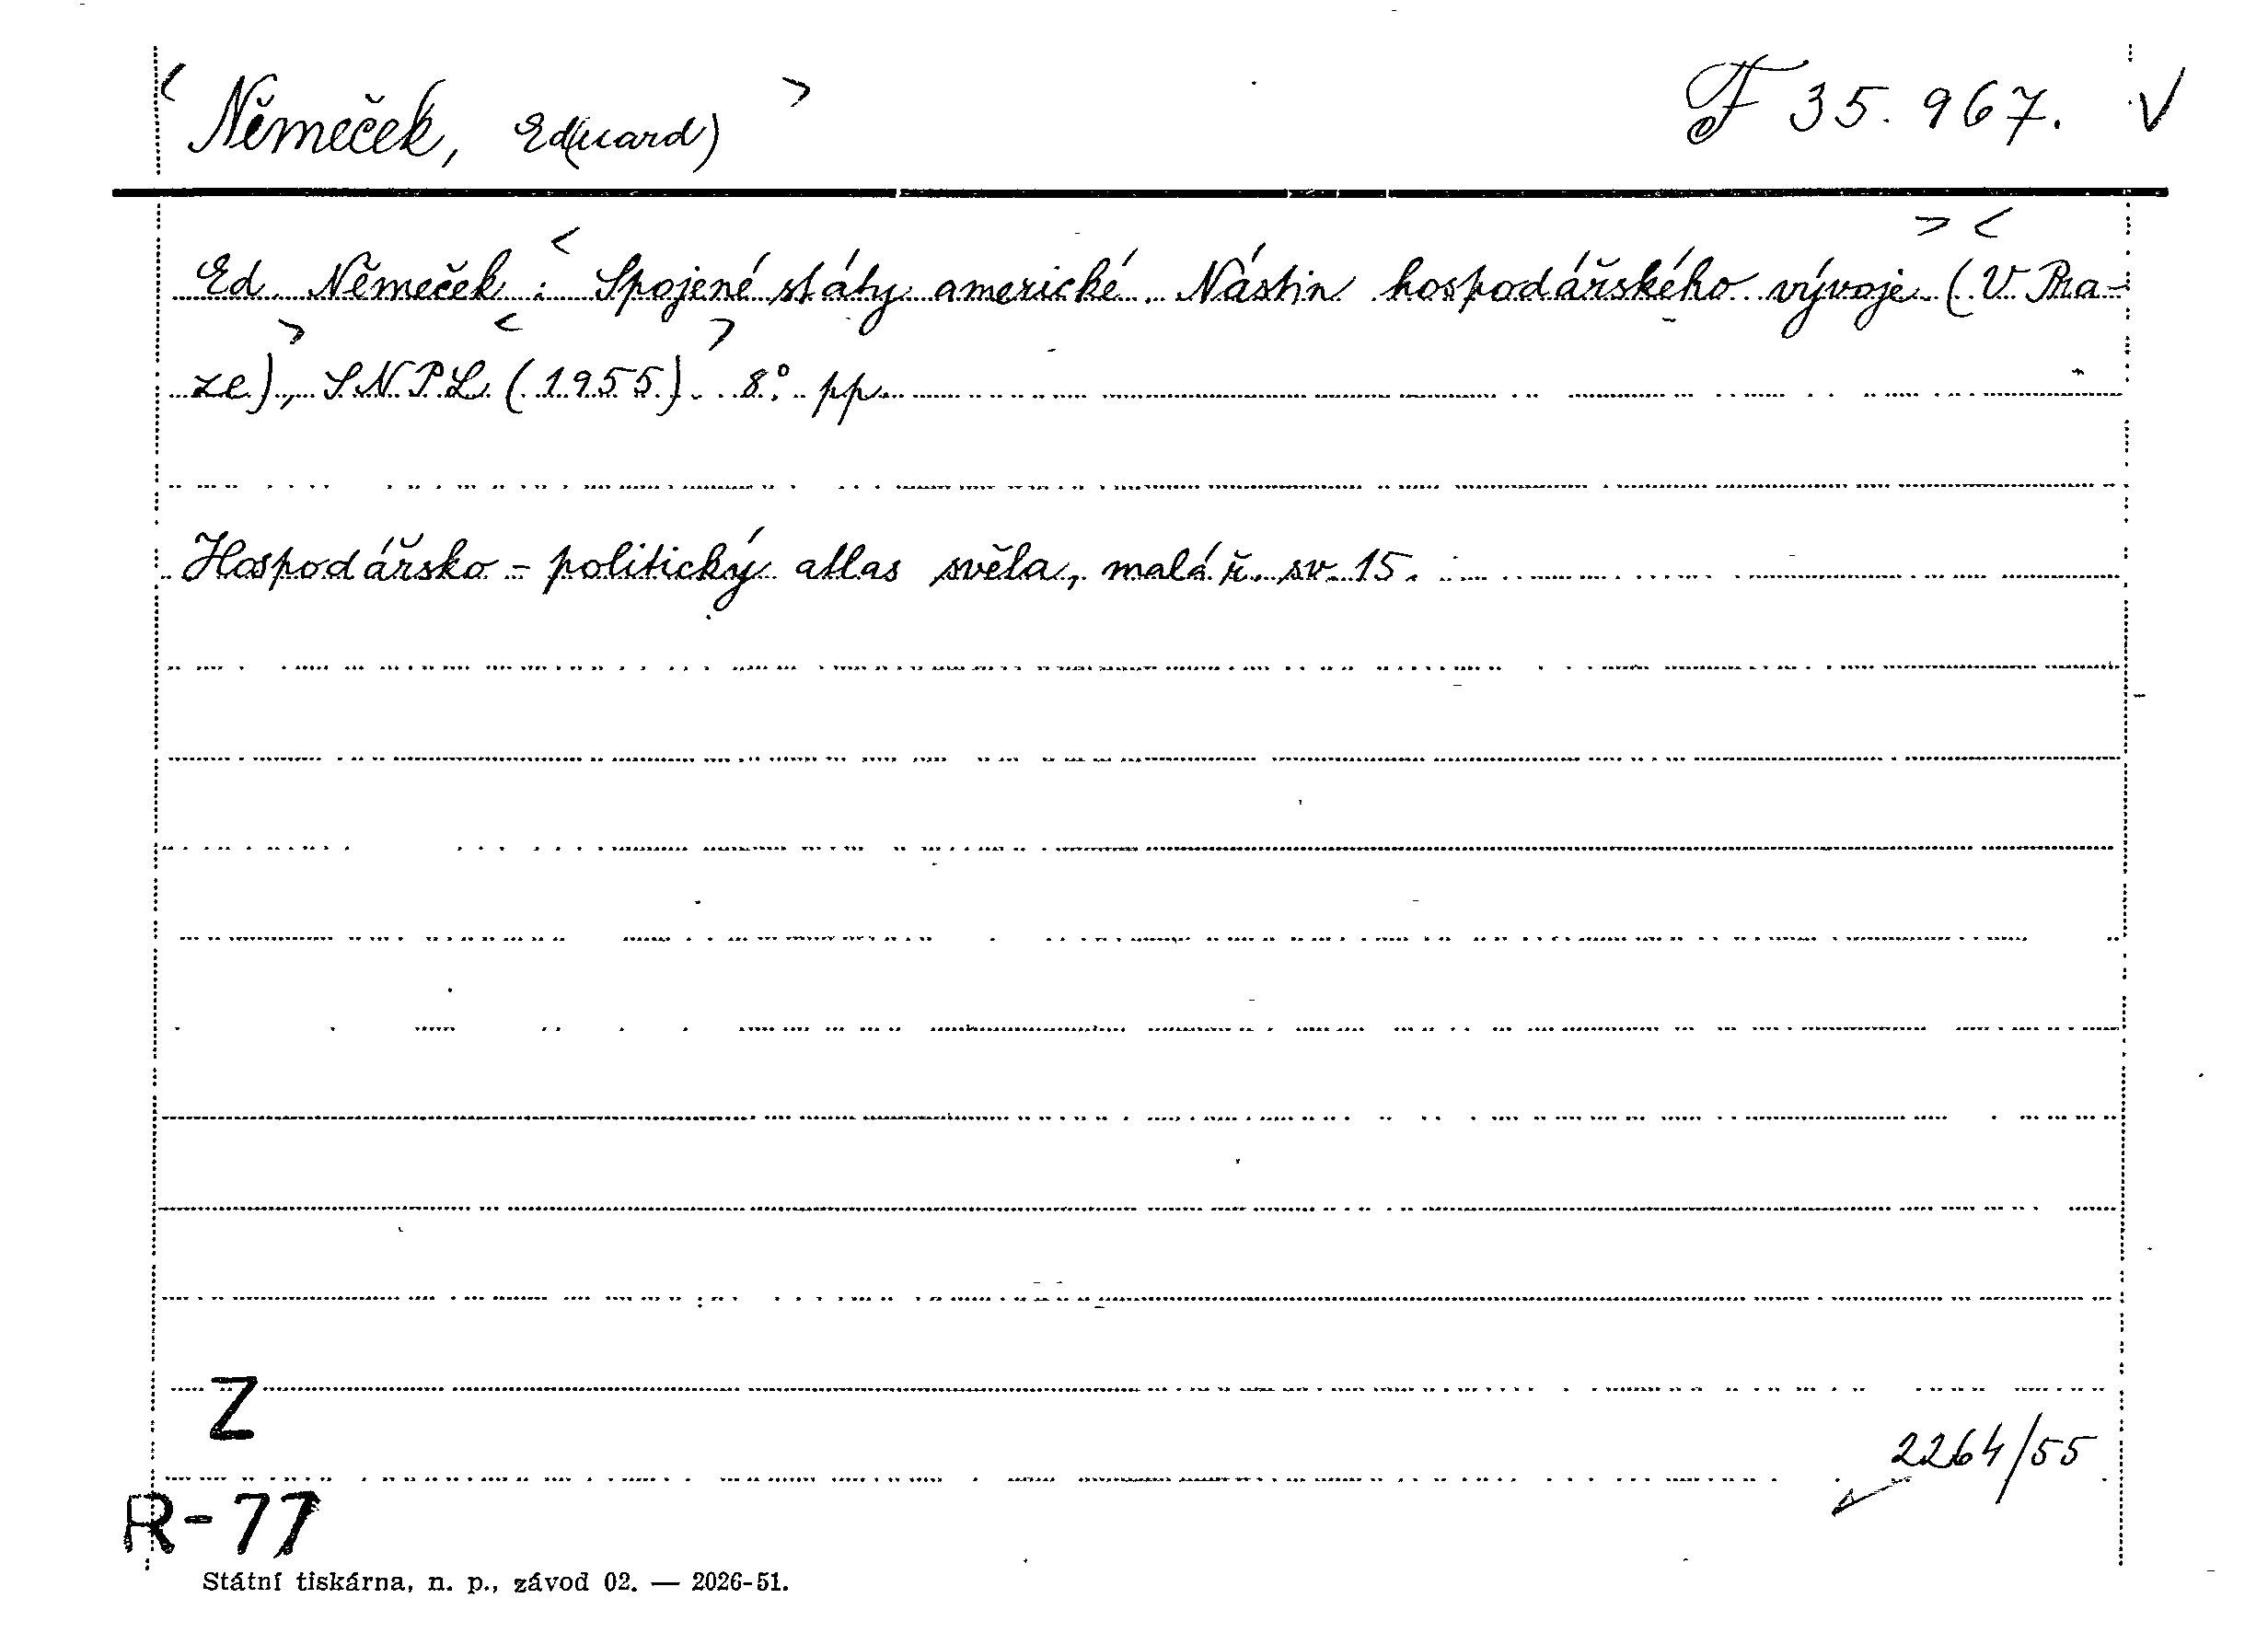 < Němeček, Ed(uard) > F 35.967. V
Ed. Němeček: < Spojené státy americké. Nástin hospodářského vývoje > < (V Pra-
ze) >, SNPL < (1955) >. 8° pp.
Hospodářsko-politický atlas světa, malá ř. sv. 15.
Z
2264/55
R-77
Státní tiskárna, n. p., závod 02. — 2026-51.